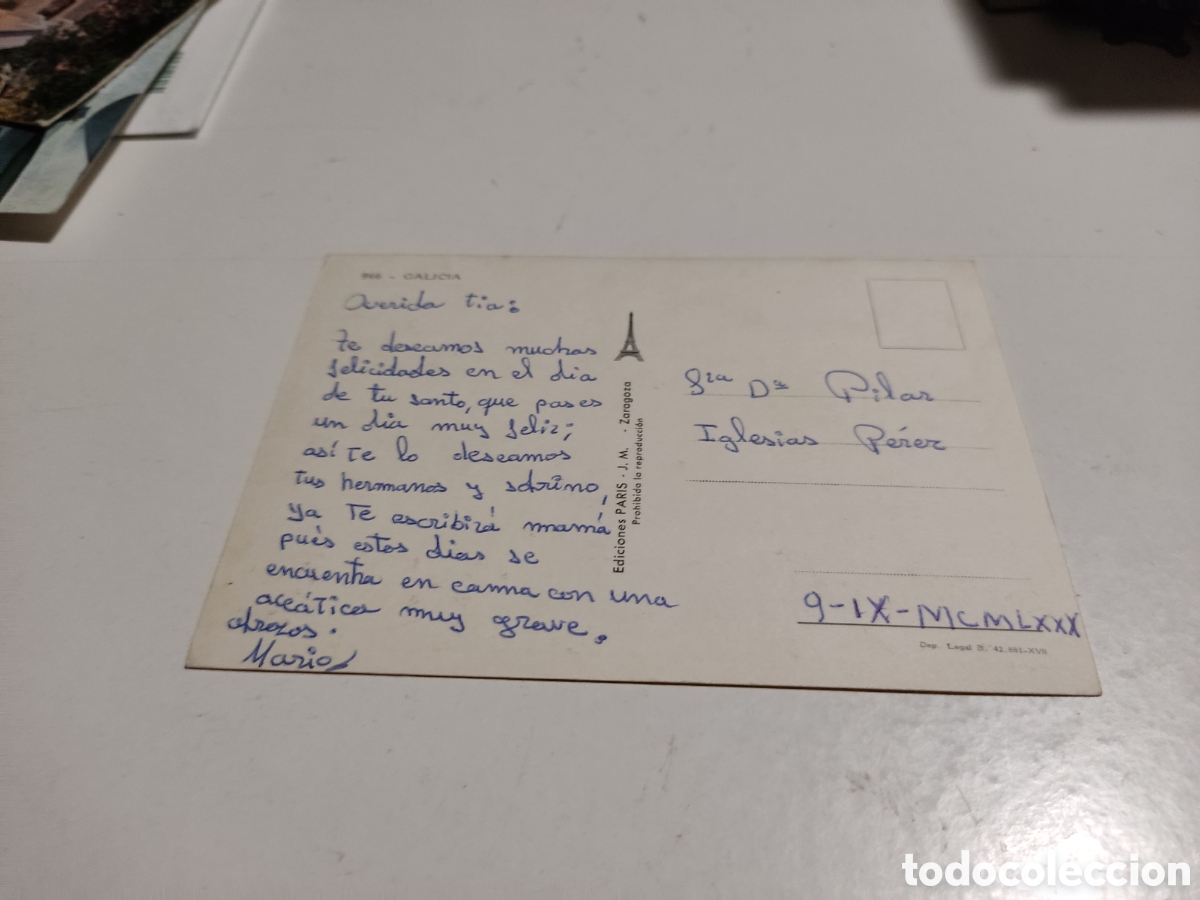 968 - GALICIA
Querida tia:
Te deseamos muchas
felicidades en el dia
de tu santo, que pases
un dia muy feliz;
así te lo deseamos
tus hermanos y sobrino,
ya te escribirá mamá
pués estos dias se
encuentra en cama con una
ceática muy grave.
abrazos.
Mario
Ediciones PARIS - J. M. - Zaragoza
Prohibida la reproducción
Sra Dª Pilar
Iglesias Pérez
9-IX-MCMLXXX
Dep. Legal B. 42.881-XVII
todocoleccion